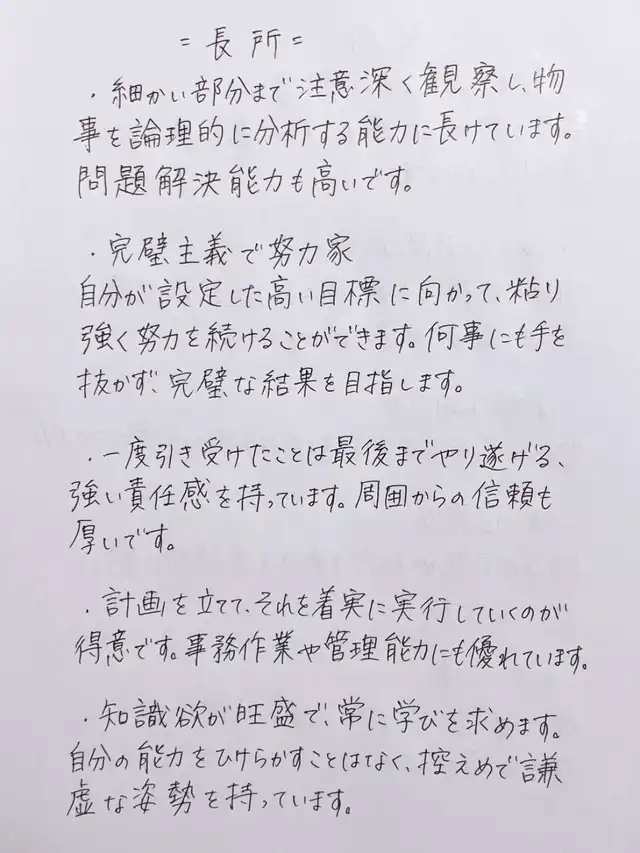 = 長所 =
・細かい部分まで注意深く観察し、物
事を論理的に分析する能力に長けています。
問題解決能力も高いです。
・完璧主義で努力家
自分が設定した高い目標に向かって、粘り
強く努力を続けることができます。何事にも手を
抜かず、完璧な結果を目指します。
・一度引き受けたことは最後までやり遂げる、
強い責任感を持っています。周囲からの信頼も
厚いです。
・計画を立てて、それを着実に実行していくのが
得意です。事務作業や管理能力にも優れています。
・知識欲が旺盛で、常に学びを求めます。
自分の能力をひけらかすことはなく、控えめで謙
虚な姿勢を持っています。